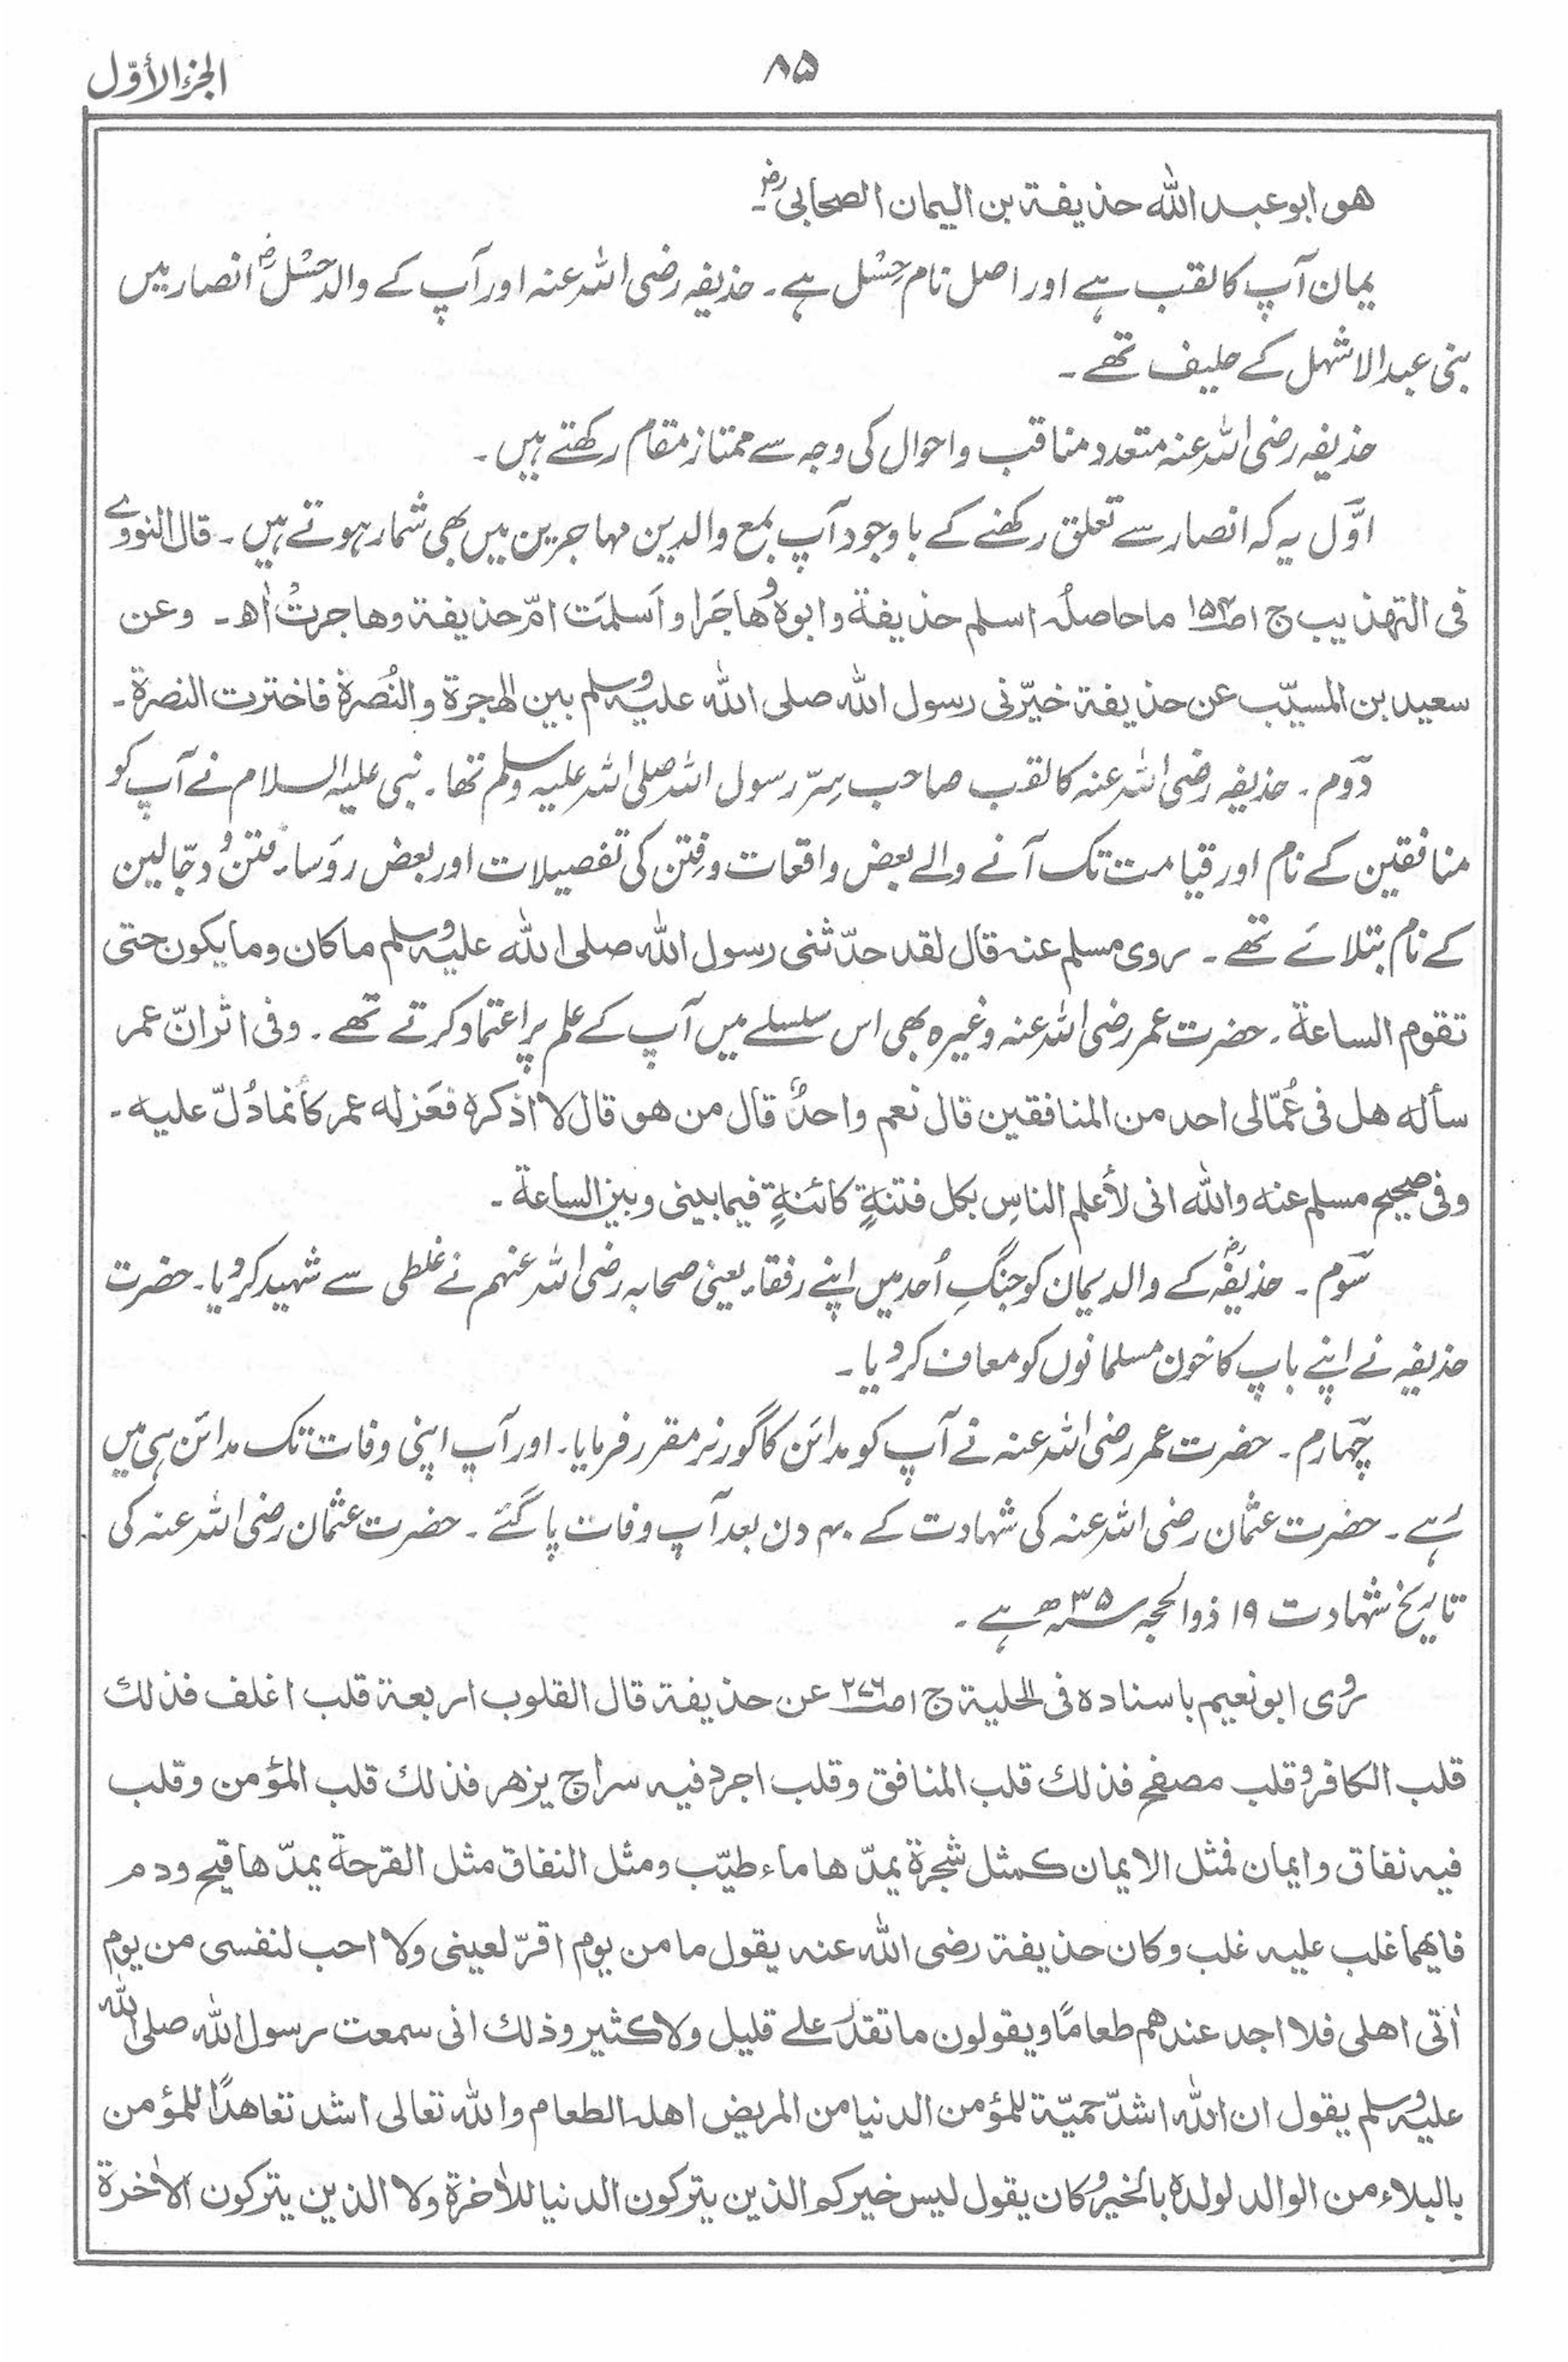 الجزء الأوّل
۸۵
هو ابو عبد الله حذيفة بن اليمان الصحابی رض۔
یمان آپ کا لقب ہے اور اصل نام حِسْل ہے۔ حذیفہ رضی اللہ عنہ اور آپ کے والد حِسْل رض انصار میں
بنی عبد الاشہل کے حلیف تھے۔
حذیفہ رضی اللہ عنہ متعدد مناقب و احوال کی وجہ سے ممتاز مقام رکھتے ہیں۔
اوّل یہ کہ انصار سے تعلق رکھنے کے باوجود آپ بمع والدین مہاجرین میں بھی شمار ہوتے ہیں۔ قال النووے
فی التهذيب ج ۱ ص۱۵۴ ما حاصلُه اسلم حذيفة وابوه وهاجَرا واَسلمَت امّ حذيفة وهاجرتْ اھ۔ وعن
سعيد بن المسيّب عن حذيفة خيّرنی رسول الله صلی الله علیہ وسلم بين الهجرة والنُصرة فاخترت النصرة۔
دوّم۔ حذیفہ رضی اللہ عنہ کا لقب صاحب سِرّ رسول اللہ صلی اللہ علیہ وسلم تھا۔ نبی علیہ السلام نے آپ کو
منافقین کے نام اور قیامت تک آنے والے بعض واقعات و فِتن کی تفصیلات اور بعض رؤساء فتن و دجّالین
کے نام بتلائے تھے۔ روی مسلم عنه قال لقد حدّثنی رسول الله صلی الله علیہ وسلم ما کان وما یکون حتی
تقوم الساعة۔ حضرت عمر رضی اللہ عنہ وغیرہ بھی اس سلسلے میں آپ کے علم پر اعتماد کرتے تھے۔ وفی اثر انّ عمر
سأله هل فی عُمّالی احد من المنافقين قال نعم واحدٌ قال من هو قال لا اذكره فعَزله عمر كأنما دُلّ عليه۔
وفی صحيح مسلم عنه والله انی لأعلم الناسِ بكل فتنةٍ كائنةٍ فيما بينی وبين الساعة۔
سوّم۔ حذیفہ رض کے والد یمان کو جنگِ اُحد میں اپنے رفقاء یعنی صحابہ رضی اللہ عنہم نے غلطی سے شہید کر دیا۔ حضرت
حذیفہ نے اپنے باپ کا خون مسلمانوں کو معاف کر دیا۔
چہارم۔ حضرت عمر رضی اللہ عنہ نے آپ کو مدائن کا گورنر مقرر فرمایا۔ اور آپ اپنی وفات تک مدائن ہی میں
رہے۔ حضرت عثمان رضی اللہ عنہ کی شہادت کے ۴۰ دن بعد آپ وفات پا گئے۔ حضرت عثمان رضی اللہ عنہ کی
تاریخ شہادت ۱۹ ذوالحجہ سنہ ۳۵ھ ہے۔
روی ابو نعيم باسناده فی الحلية ج ۱ ص۲۷۶ عن حذيفة قال القلوب اربعة قلب اغلف فذلك
قلب الكافر وقلب مصفح فذلك قلب المنافق وقلب اجرد فيه سراج يزهر فذلك قلب المؤمن وقلب
فيه نفاق وايمان فمثل الايمان كمثل شجرة يمدّها ماء طيّب ومثل النفاق مثل القرحة يمدّها قيح ودم
فايهما غلب عليه غلب وكان حذيفة رضی الله عنه يقول ما من يوم اقرّ لعينی ولا احب لنفسی من يوم
اٰتی اهلی فلا اجد عندهم طعامًا ويقولون ما تقدر علے قليل ولا كثير وذلك انی سمعت رسول الله صلی الله
علیہ وسلم يقول ان الله اشدّ حميّة للمؤمن الدنيا من المريض اهله الطعام والله تعالی اشد تعاهدًا للمؤمن
بالبلاء من الوالد لولده بالخير وكان يقول ليس خيركم الذين يتركون الدنيا للاٰخرة ولا الذين يتركون الاٰخرة